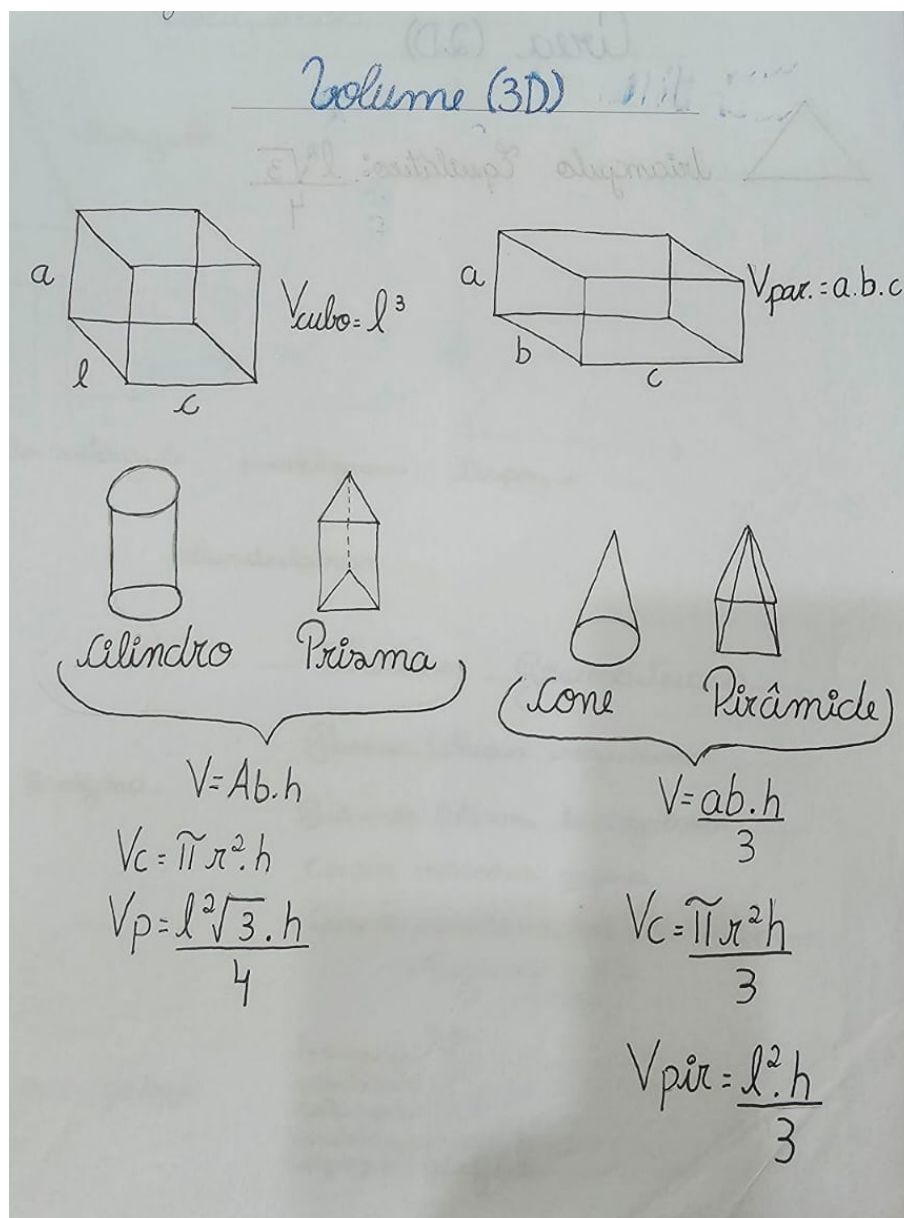 Volume (3D)
a
l
c
Vcubo = l³
a
b
c
Vpar. = a.b.c
Cilindro
Prisma
V = Ab.h
Vc = π r².h
Vp = l²√3.h
4
Cone
Pirâmide
V = ab.h
3
Vc = π r²h
3
Vpir = l².h
3